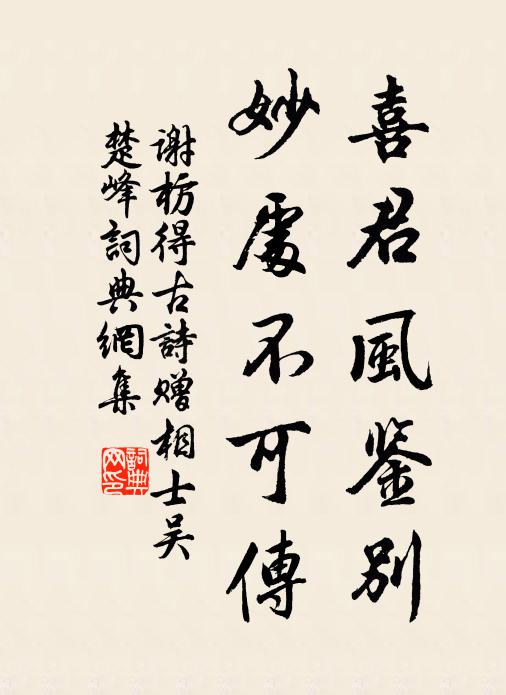 喜君風鉴别
妙處不可傳
谢枋得古詩赠相士吴
楚峰詞典網集
詞典网印